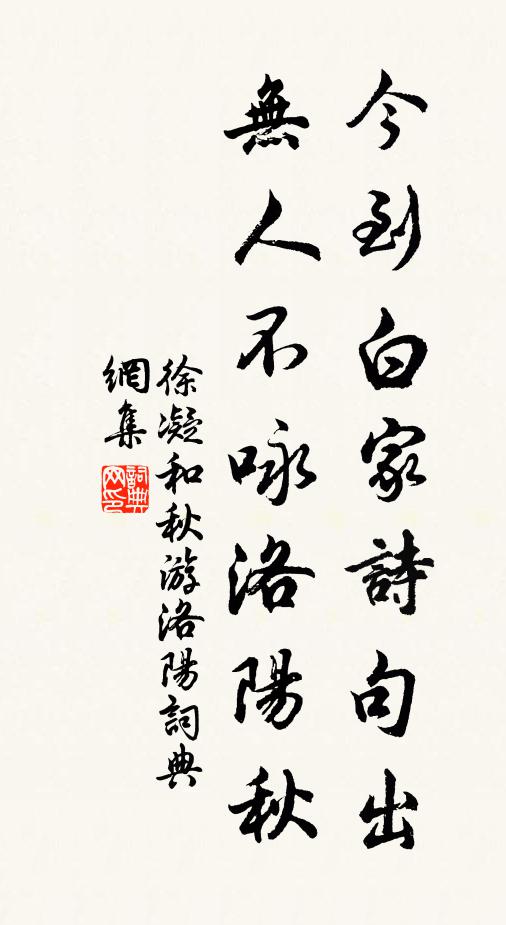 今到白家詩句出
無人不咏洛陽秋
徐凝和秋游洛陽詞典
網集
詞典網印